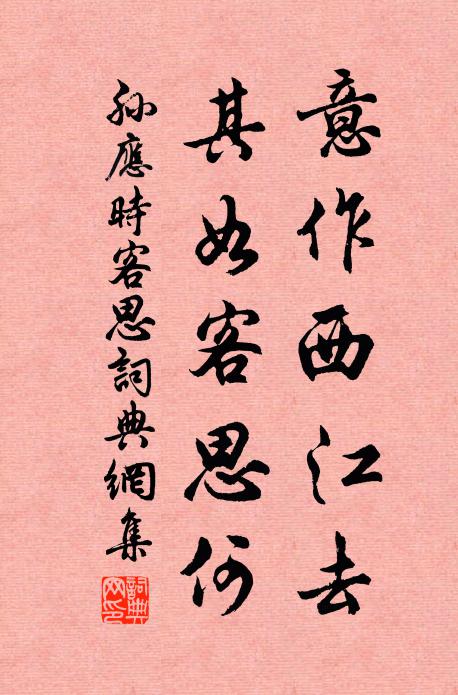 意作西江去
其如客思何
孫應時客思詞典網集
詞典
网印